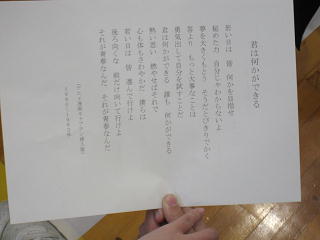 君は何かができる
若い日は 皆 何かを目指せ
秘めた力 自分じゃわからないよ
夢を大きくもとう そうだとびきりでかく
答より もっと大事なことは
勇気出して自分を試すことだ
君は何かができる 誰も 何かができる
熱い思い 燃やせばそれで
心も体もさわやかだ 僕らは
若い日は 皆 選んで行けよ
後ろ向くな 前だけ向いて行けよ
それが青春なんだ それが青春なんだ